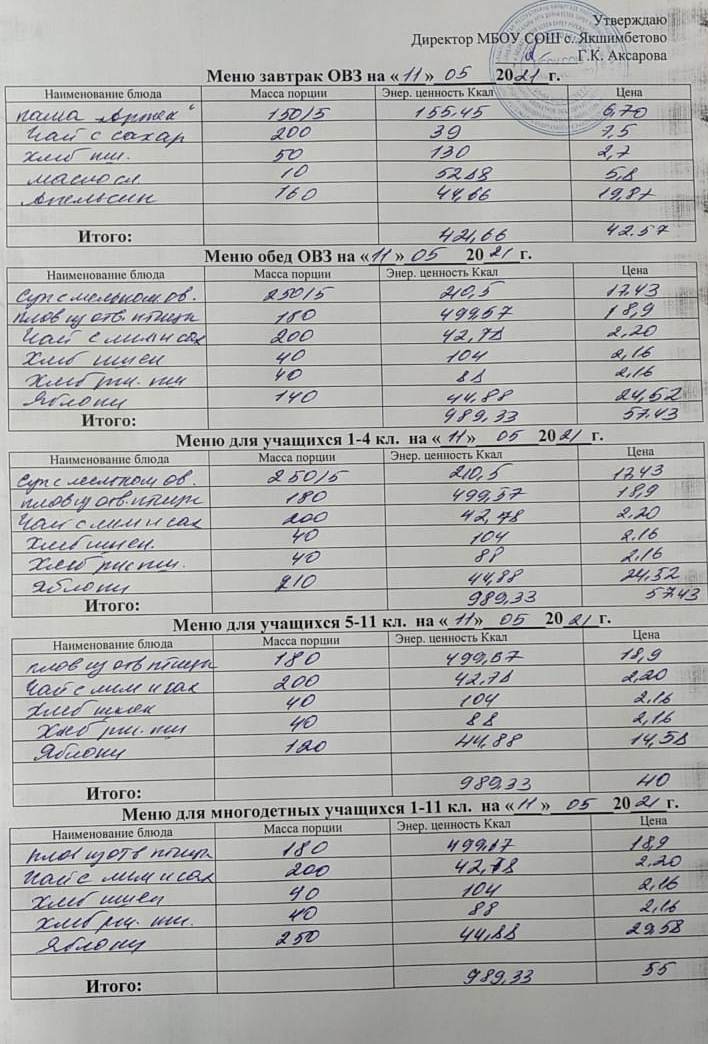 Утверждаю
Директор МБОУ СОШ с. Якшимбетово
Г.К. Аксарова
Меню завтрак ОВЗ на «11» 05 2021 г.
Наименование блюда Масса порции Энер. ценность Ккал Цена
каша "Артек" 150/5 155.45 6,70
Чай с сахар 200 39 7,5
хлеб пш. 50 130 2,7
масло сл 10 52,58 5,8
Апельсин 160 44,66 19,87
Итого: 421,66 42.57
Меню обед ОВЗ на «11» 05 2021 г.
Наименование блюда Масса порции Энер. ценность Ккал Цена
Суп с мельком ов. 250/5 210,5 17.43
плов из отв. птицы 180 499,57 18,9
Чай с лим и сах 200 42,78 2,20
Хлеб пшен 40 104 2,16
Хлеб рж. пш 40 88 2,16
Яблоки 140 44,88 24,52
Итого: 989,33 57.43
Меню для учащихся 1-4 кл. на «11» 05 2021 г.
Наименование блюда Масса порции Энер. ценность Ккал Цена
Суп с мельком ов. 250/5 210,5 17.43
плов из отв. птицы 180 499,57 18,9
Чай с лим и сах 200 42,78 2.20
Хлеб пшен. 40 104 2.16
Хлеб рж пш. 40 88 2.16
Яблоки 210 44,88 24,52
Итого: 989,33 57.43
Меню для учащихся 5-11 кл. на «11» 05 2021 г.
Наименование блюда Масса порции Энер. ценность Ккал Цена
плов из отв птицы 180 499,57 18,9
Чай с лим и сах 200 42.78 2,20
Хлеб пшен 40 104 2,16
Хлеб рж. пш 40 88 2,16
Яблоки 120 44,88 14,58
Итого: 989,33 40
Меню для многодетных учащихся 1-11 кл. на «11» 05 2021 г.
Наименование блюда Масса порции Энер. ценность Ккал Цена
плов из отв птицы 180 499,57 18,9
Чай с лим и сах 200 42,78 2.20
Хлеб пшен 40 104 2,16
Хлеб рж. пш. 40 88 2,16
Яблоки 250 44,88 29.58
Итого: 989,33 55